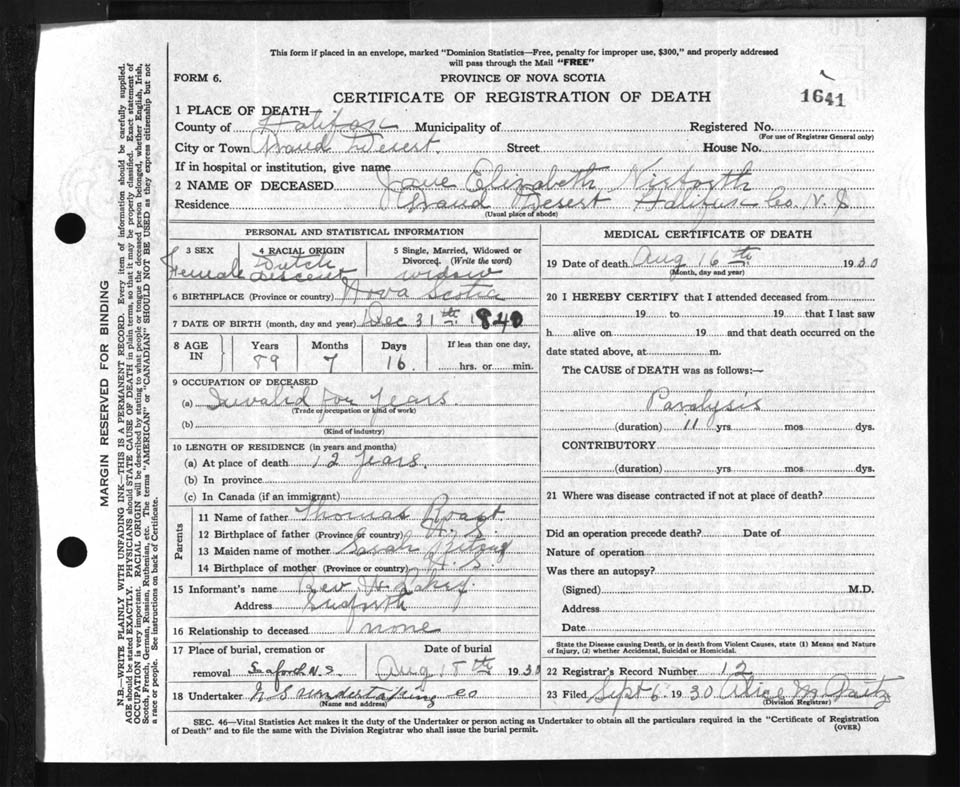 This form if placed in an envelope, marked "Dominion Statistics—Free, penalty for improper use, $300," and properly addressed
will pass through the Mail "FREE"
FORM 6.
PROVINCE OF NOVA SCOTIA
CERTIFICATE OF REGISTRATION OF DEATH
1641
1 PLACE OF DEATH
County of Halifax Municipality of Registered No.
(For use of Registrar General only)
City or Town Grand Desert. Street House No.
If in hospital or institution, give name
2 NAME OF DECEASED Jane Elizabeth
Residence Grand Desert Halifax Co. N.S
(Usual place of abode)
PERSONAL AND STATISTICAL INFORMATION
3 SEX Female
4 RACIAL ORIGIN Dutch Descent
5 Single, Married, Widowed or
Divorced. (Write the word)
widow
6 BIRTHPLACE (Province or country) Nova Scotia
7 DATE OF BIRTH (month, day and year) Dec 31th. 1840
8 AGE IN Years Months Days If less than one day,
89 7 16. hrs. or min.
9 OCCUPATION OF DECEASED
(a) Invalid for years.
(Trade or occupation or kind of work)
(b)
(Kind of industry)
10 LENGTH OF RESIDENCE (in years and months)
(a) At place of death 12 years.
(b) In province
(c) In Canada (if an immigrant)
Parents
11 Name of father Thomas Roast
12 Birthplace of father (Province or country) N.S.
13 Maiden name of mother Sarah
14 Birthplace of mother (Province or country) N.S
15 Informant's name Rev. W
Address Seaforth
16 Relationship to deceased none
17 Place of burial, cremation or Date of burial
removal Seaforth N.S Aug 18th 1930
18 Undertaker N S undertaking co
(Name and address)
MEDICAL CERTIFICATE OF DEATH
19 Date of death Aug 16th 1930
(Month, day and year)
20 I HEREBY CERTIFY that I attended deceased from
19 to 19 that I last saw
h alive on 19 and that death occurred on the
date stated above, at m.
The CAUSE of DEATH was as follows:—
Paralysis
(duration) 11 yrs. mos. dys.
CONTRIBUTORY
(duration) yrs. mos. dys.
21 Where was disease contracted if not at place of death?
Did an operation precede death? Date of
Nature of operation
Was there an autopsy?
(Signed) M.D.
Address
Date
State the Disease causing Death, or in death from Violent Causes, state (1) Means and Nature
of Injury, (2) whether Accidental, Suicidal or Homicidal.
22 Registrar's Record Number 12
23 Filed Sept 6. 1930 Alice M. Gaitz
(Division Registrar)
SEC. 46—Vital Statistics Act makes it the duty of the Undertaker or person acting as Undertaker to obtain all the particulars required in the "Certificate of Registration
of Death" and to file the same with the Division Registrar who shall issue the burial permit.
(OVER)
MARGIN RESERVED FOR BINDING
N.B.—WRITE PLAINLY WITH UNFADING INK—THIS IS A PERMANENT RECORD. Every item of information should be carefully supplied.
AGE should be stated EXACTLY. PHYSICIANS should STATE CAUSE OF DEATH in plain terms, so that it may be properly classified. Exact statement of
OCCUPATION is very important. RACIAL ORIGIN will be described by stating to what people or tongue the deceased person belonged, whether English, Irish,
Scotch, French, German, Russian, Ruthenian, etc. The terms "AMERICAN" or "CANADIAN" SHOULD NOT BE USED as they express citizenship but not
a race or people. See instructions on back of Certificate.